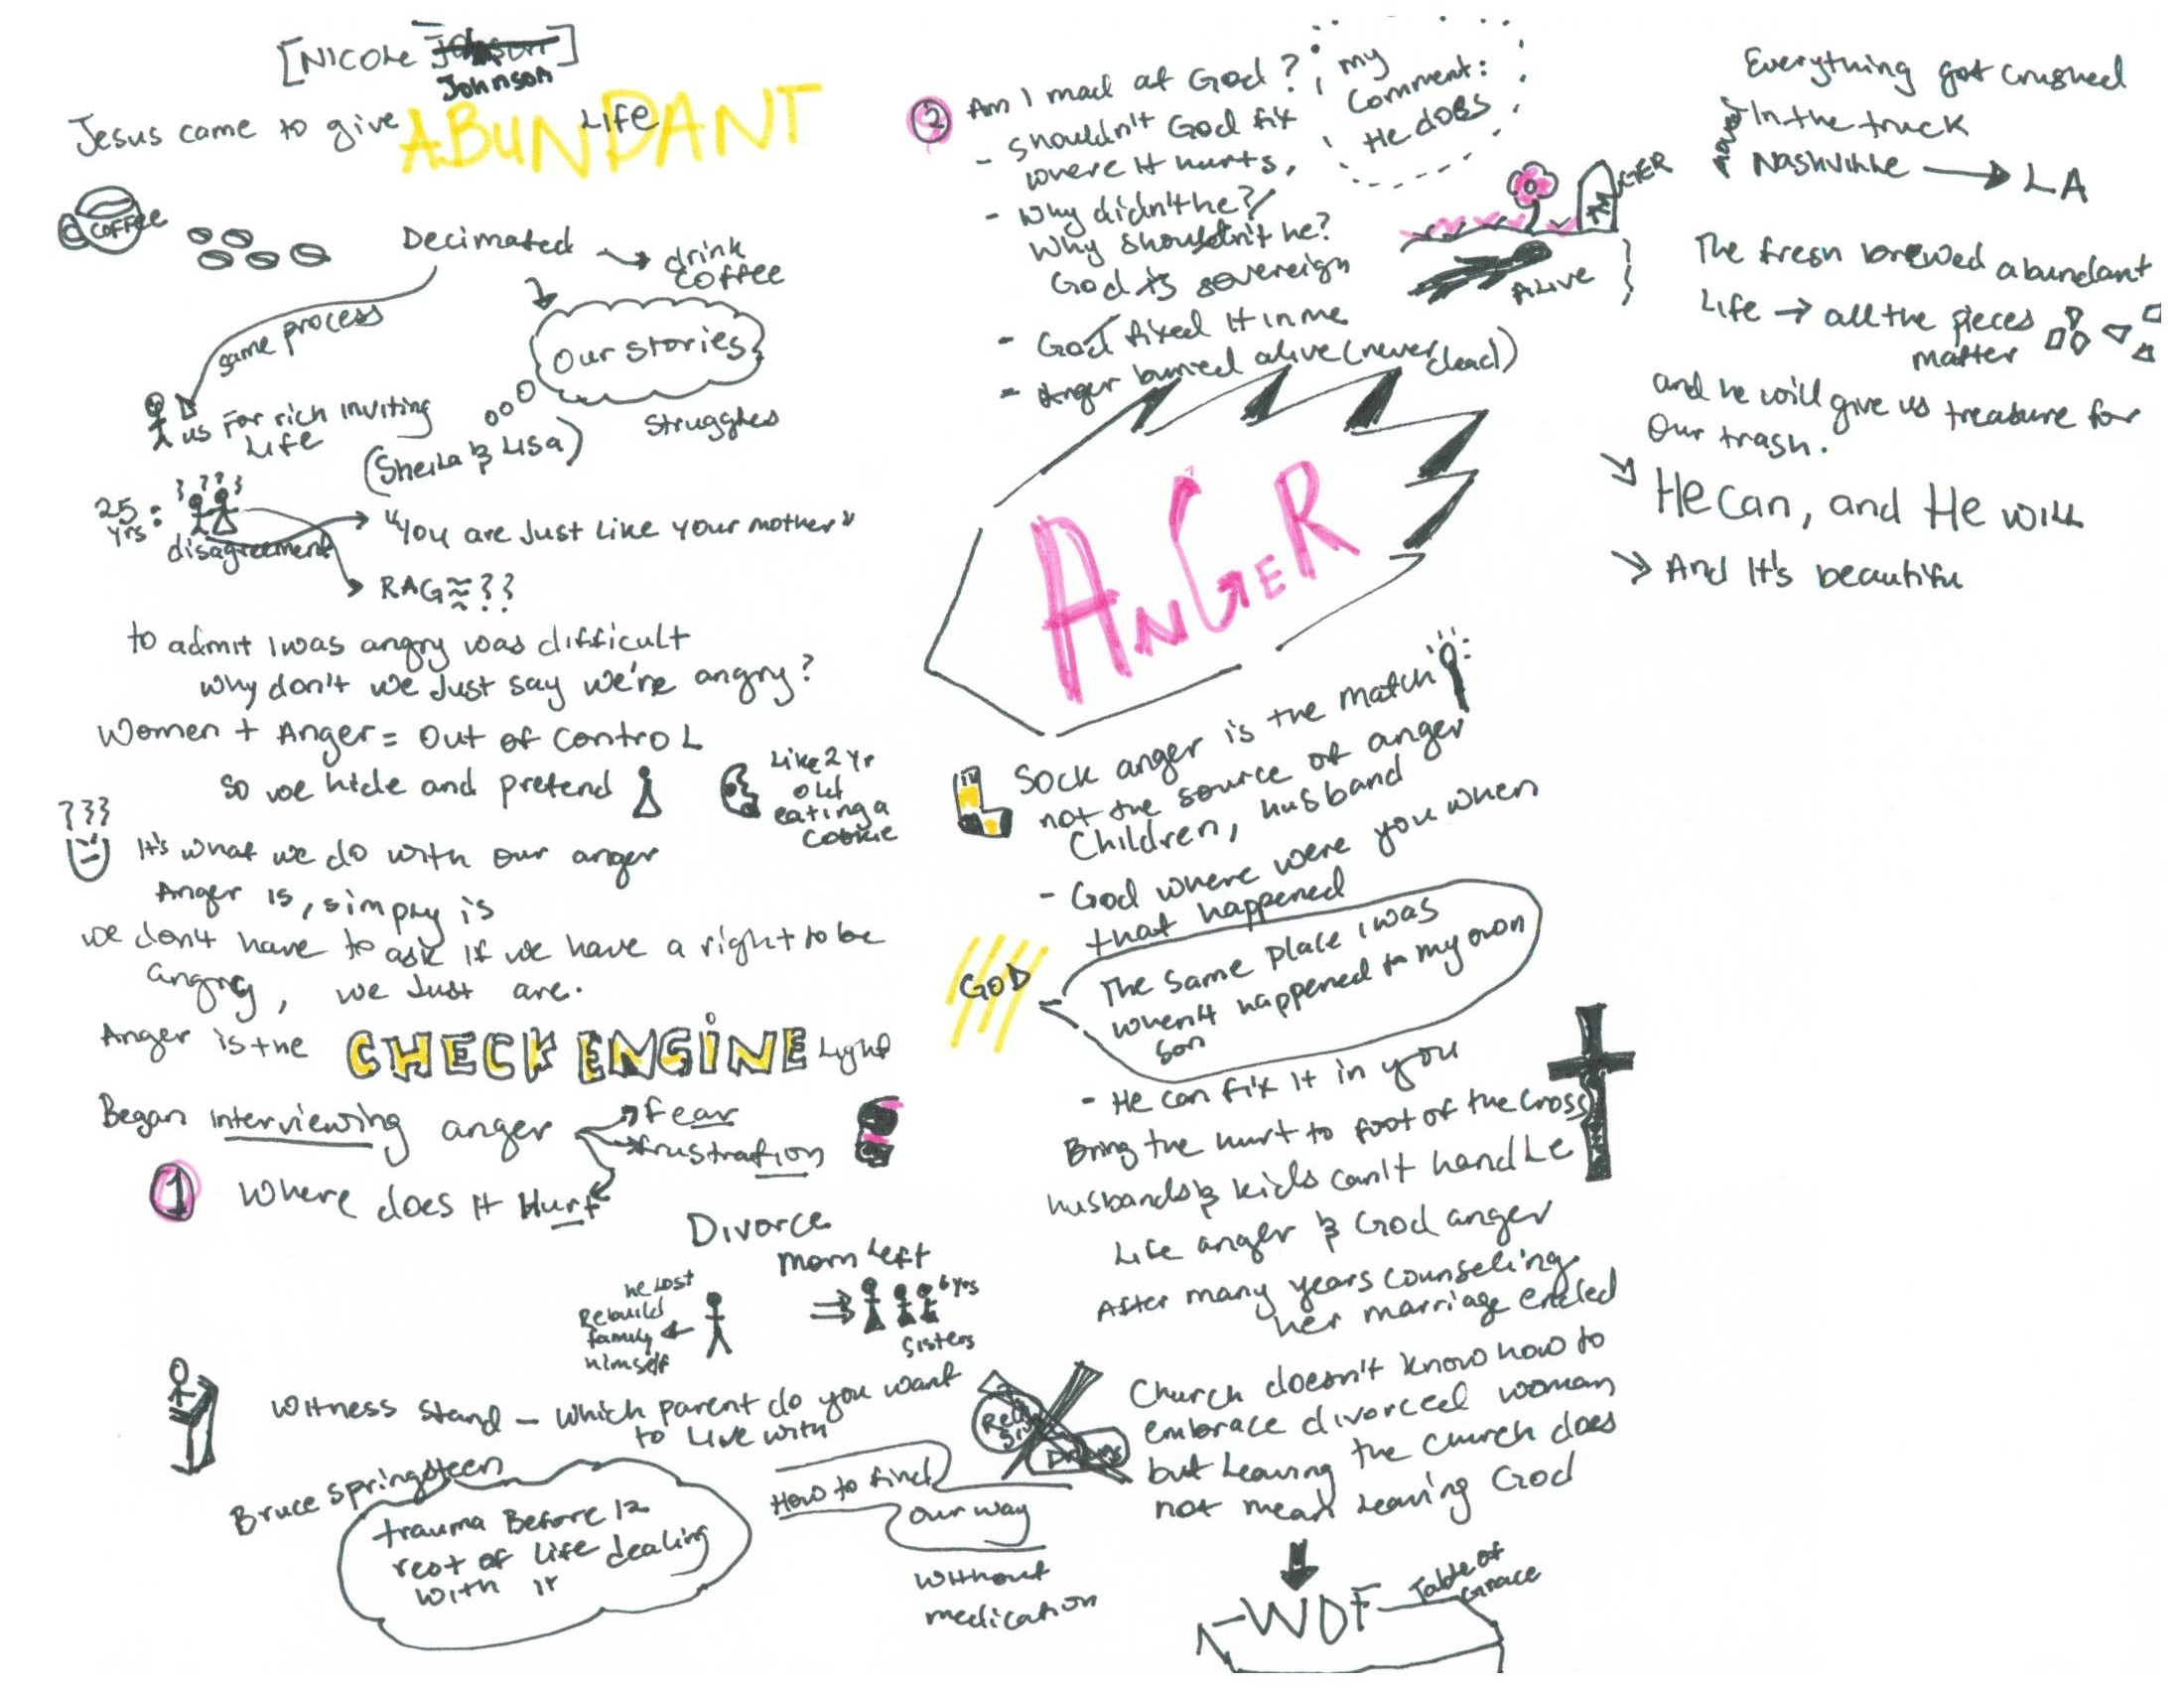 [NICOLE Johnson]
Johnson
Jesus came to give ABUNDANT LIFE
COFFEE
Decimated
drink
coffee
same process
Our stories
struggles
us For rich inviting
Life
(Sheila & Lisa)
25
yrs:
???
disagreement
"You are Just Like your mother"
RAGE??
to admit I was angry was difficult
why don't we Just say we're angry?
Women + Anger = Out of control
so we hide and pretend
Like 2 yr
old
eating a
cookie
???
It's what we do with our anger
Anger is, simply is
we don't have to ask if we have a right to be
angry, we Just are.
Anger is the CHECK ENGINE Light
Began interviewing anger
fear
frustration
1 Where does It Hurt
Divorce
he Lost
Rebuild
family
himself
mom Left
6 yrs
sisters
Witness stand - which parent do you want
to Live with
Bruce springsteen
trauma Before 12
rest of life dealing
with it
How to find
our way
without
medication
2 Am I mad at God?
- shouldn't God fix
where It hurts,
- Why didn't he?/
Why shouldn't he?
God is sovereign
- God fixed It in me
- Anger buried alive (never dead)
my
comment:
He does
ANGER
ALIVE
ANGER
Sock anger is the match
not the source of anger
Children, husband
- God where were you when
that happened
GOD
The same place I was
when it happened to my own
son
- He can fix It in you
Bring the hurt to foot of the cross
husbands & kids can't handle
Life anger & God anger
After many years counseling
her marriage ended
Church doesn't know how to
embrace divorced woman
but Leaving the church does
not mean Leaving God
WOF
Table of
Grace
Everything got crushed
In the truck
moved
Nashville → LA
The fresh brewed abundant
Life → all the pieces
matter
and he will give us treasure for
our trash.
He can, and He will
And It's beautiful